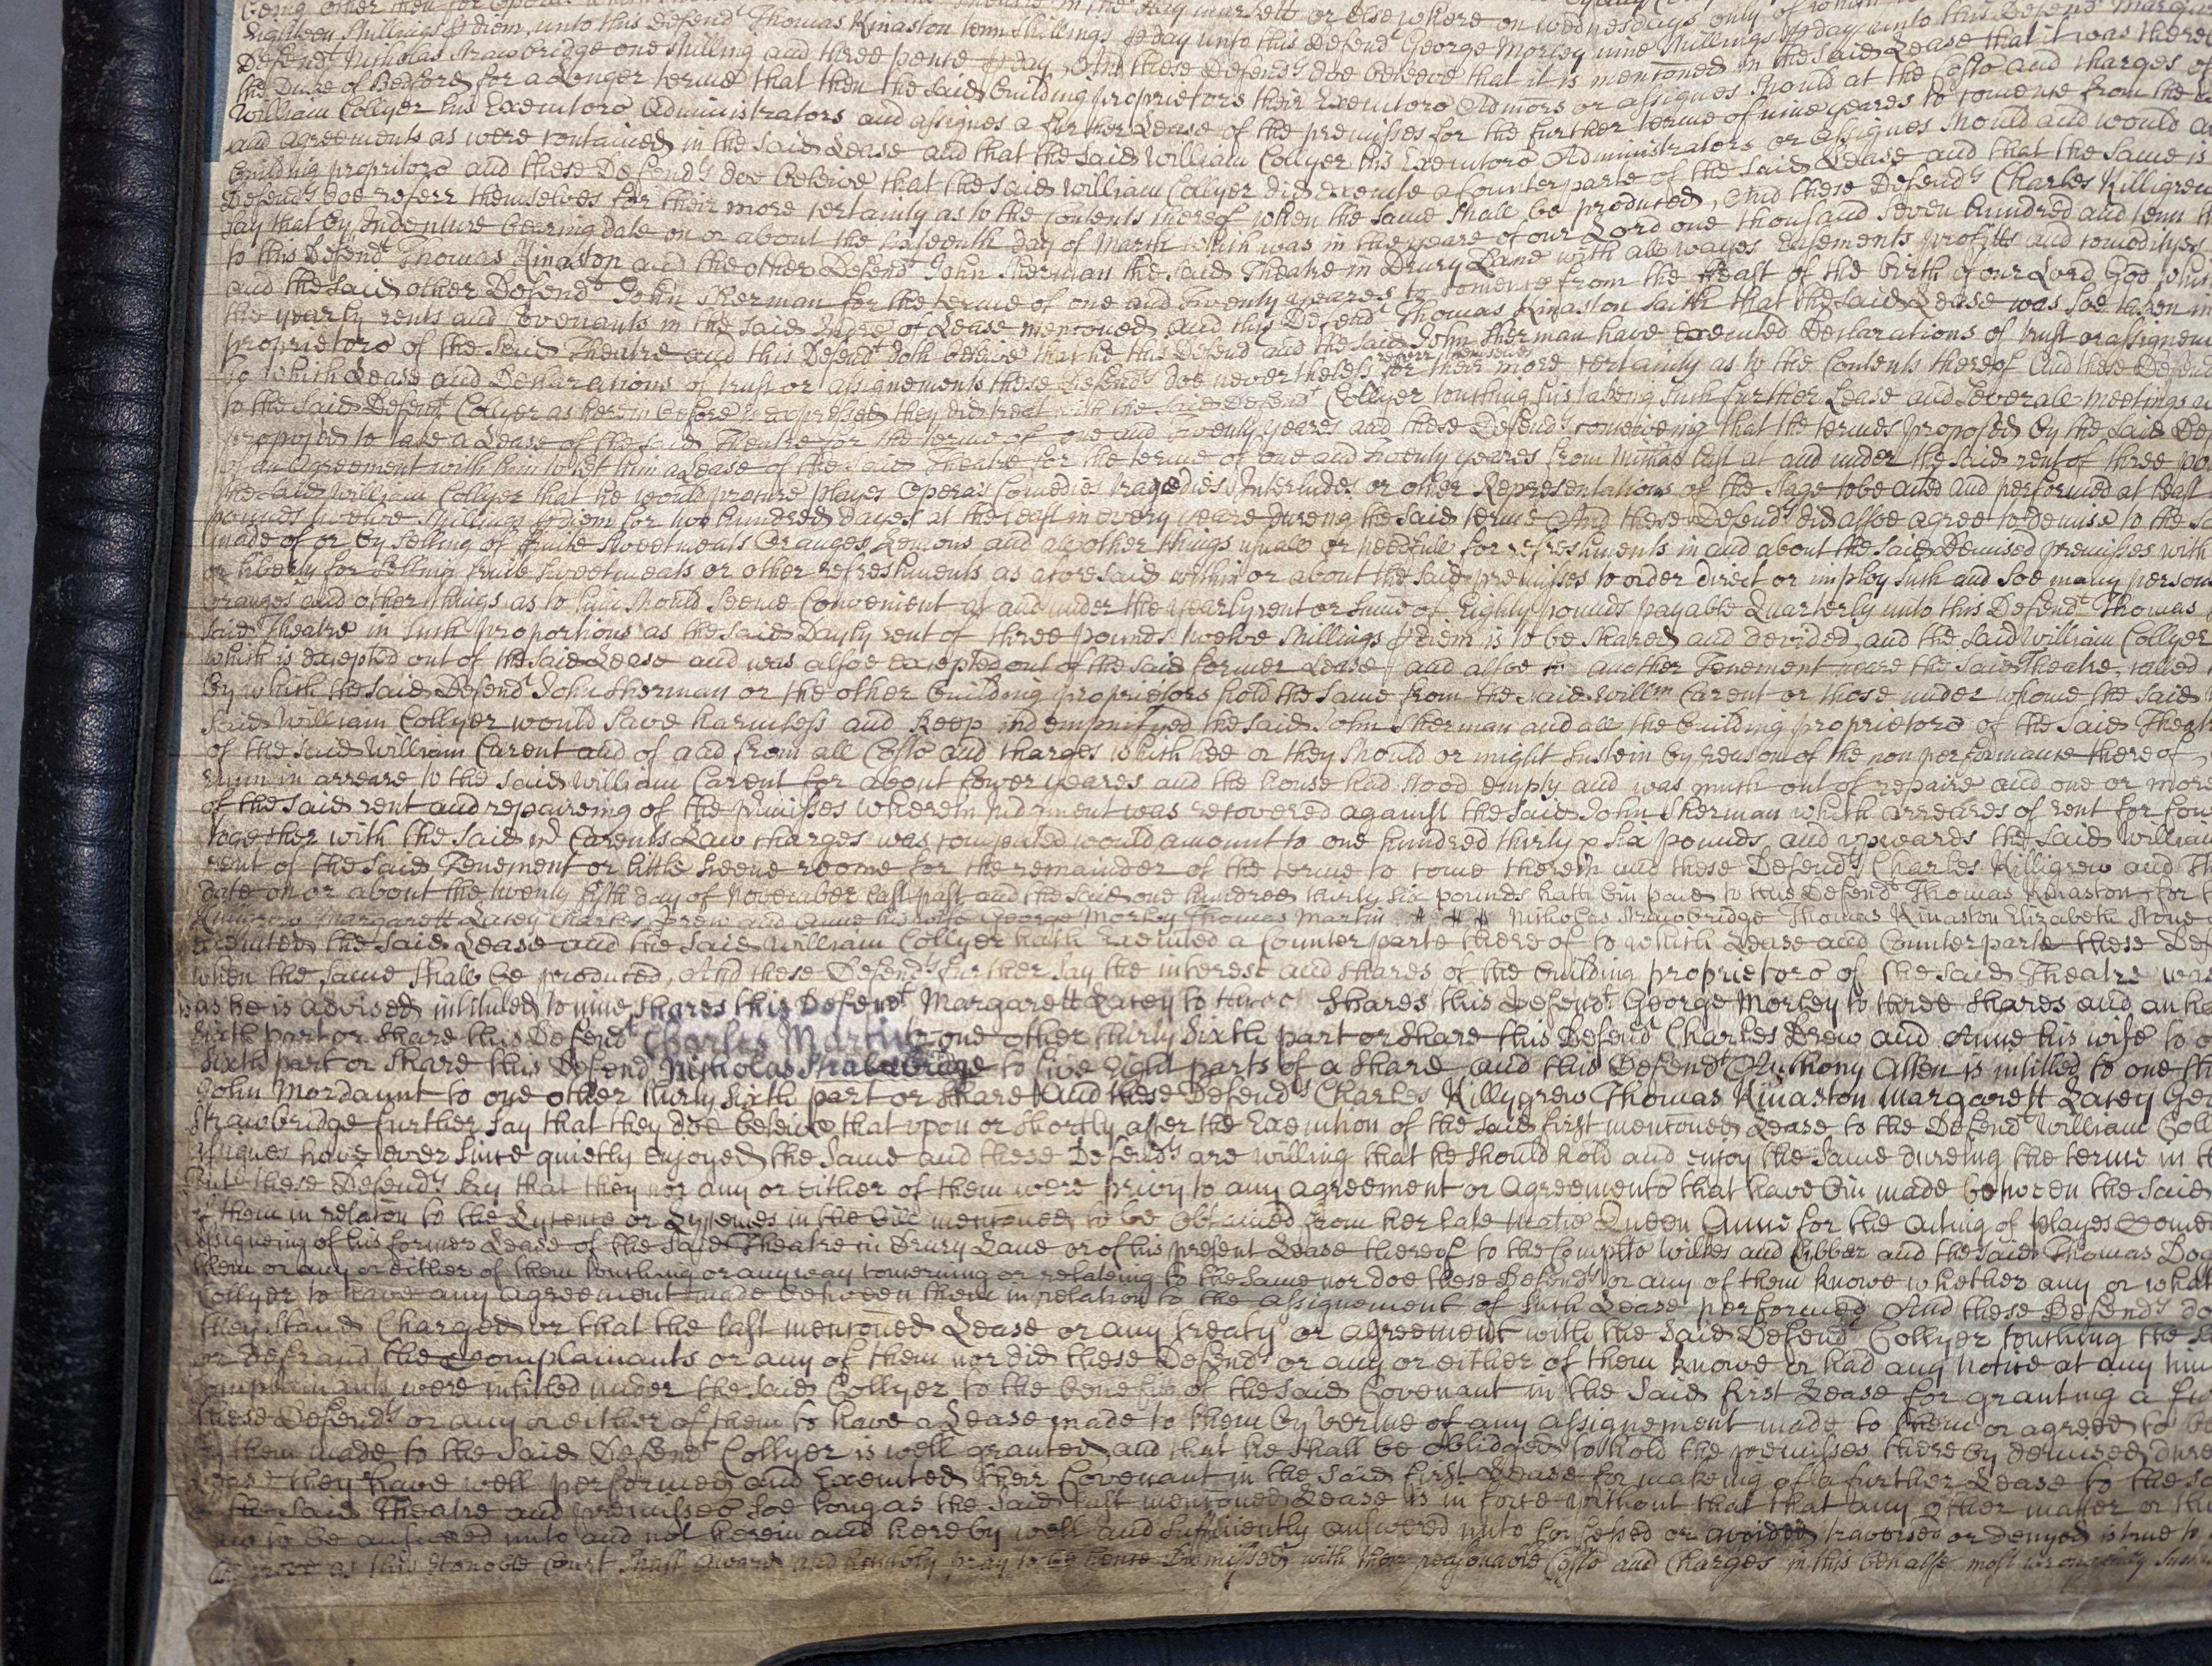 Eighteen shillings p diem unto this Defendt Thomas Kinaston tenn shillings p day unto this Defendt George Morley nine shillings p day unto this Defendt
Defendt Nicholas Strawbridge one shilling and three pence p day And these Defendts doe beleeve that it is mentoned in the said Lease that it was
the Duke of Bedford for a Longer terme that then the said Building proprietors their Executors Admors or assignes should at the Costs and charges of
William Collyer his Executors Administrators and assignes a further Lease of the premisses for the further terme of nine yeares to comence from the
and agreements as were contained in the said Lease and that the said William Collyer his Executors Administrators or assignes should and would
Building propriters and these Defendts doe beleive that the said William Collyer did execute a Counterparte of the said Lease and that the same is
Defendts doe referr themselves for their more certainty as to the Contents thereof when the same shall be produced, And these Defendts Charles Killigrew
say that by Indenture bearing date on or about the day of March which was in the yeare of our Lord one thousand seven hundred and tenn
to this Defendt Thomas Kinaston and the other Defendt John Sherman the said Theatre in Drury Lane with all wayes Easements profitts and comodityes
and the said other Defendt John Sherman for the terme of one and twenty yeares to comence from the Feast of the birth of our Lord God
the yearly rents and Covenants in the said Indre of Lease mentoned and this Defendt Thomas Kinaston saith that the said Lease was soe taken in
proprietors of the said Theatre and this Defendt doth beleive that he this Defend and the said John Sherman have executed Declarations of trust or
to which Lease and Declarations of trust or assignements these Defendts doe nevertheless referr themselves for their more certainty as to the Contents thereof And these
to the said Defendt Collyer as herein before is expressed they did treat with the said Defendt Collyer touching his takeing such further Lease and severall meetings
proposed to take a Lease of the said Theatre for the terme of one and twenty yeares and these Defendts conceiveing that the termes proposed by the said
of an agreement with him to let him a Lease of the said Theatre for the terme of one and twenty yeares from Michas last at and under the said rent of three
the said William Collyer that he would procure playes Operas Comedies tragedies Interludes or other Representations of the stage to be acted and performed at least
pounds twelve shillings p diem for two hundred dayes at the least in every yeare dureing the said terme And these Defendts did alsoe agree to demise to the
made of or by selling of fruite sweetmeats Oranges Lemons and all other things usuall or needfull for refreshments in and about the said Demised premisses with
or liberty for selling fruite sweetmeats or other refreshments as aforesaid within or about the said premisses to order direct or imploy such and soe many
oranges and other things as to him should seeme Convenient at and under the yearly rent or sume of Eighty pounds payable Quarterly unto this Defendt Thomas
said Theatre in such proportions as the said Dayly rent of three pounds twelve shillings p diem is to be shared and devided and the said William Collyer
which is excepted out of the said Lease and was alsoe excepted out of the said former Lease and alsoe to another Tenement neare the said Theatre, called
by which the said Defendt John Sherman or the other building proprietors hold the same from the said Willm Carent or those under whome the said
said William Collyer would save harmless and keep indempnifyed the said John Sherman and all the building proprietors of the said
of the said William Carent and of and from all Costs and charges which hee or they should or might sustein by reason of the non performance thereof
runn in arreare to the said William Carent for about fower yeares and the house had stood empty and was much out of repaire and one or more
of the said rent and repaireing of the premisses wherein Judgment was recovered against the said John Sherman which arreares of rent for
together with the said Carents Law charges was computed would amount to one hundred thirty six pounds and upwards the said
rent of the said Tenement or little scene roome for the remainder of the terme to come therein and these Defendts Charles Killigrew and
date on or about the twenty fifth day of November last past and the said one hundred thirty six pounds hath bin paid to this Defendt Thomas Kinaston for
Killigrew Margarett Lacey Charles Drew and Anne his wife George Morley Thomas Martin Nicholas Strawbridge Thomas Kinaston Elizabeth Stone
executed the said Lease and the said William Collyer hath Executed a Counterparte thereof to which Lease and Counterparte these
when the same shall be produced, And these Defendts further say the interest and shares of the building proprietors of the said Theatre was
as he is advised intituled to nine shares this Defendt Margarett Lacey to three shares this Defendt George Morley to three shares and an
sixth part or share this Defendt Charles Martin to one other thirty sixth part or share this Defendt Charles Drew and Anne his wife to
sixth part or share this Defend Nicholas Strabridge to five Eight parts of a share and this Defendt Anthony Allen is intitled to one
John Mordaunt to one other thirty sixth part or share And these Defendts Charles Killygrew Thomas Kinaston Margarett Lacey
Strawbridge further say that they doe beleive that upon or shortly after the Execution of the said first mentoned Lease to the Defendt William
assignes have ever since quietly enjoyed the same and these Defendts are willing that he should hold and enjoy the same dureing the terme in
these Defendts say that they nor any or either of them were privy to any agreement or agreements that have bin made between the said
of them in relaton to the Lycence or Lycenses in the bill mentoned to be obtained from her late Matie Queen Anne for the acting of playes
assigneing of his former Lease of the said Theatre in Drury Lane or of his present Lease thereof to the Complts Wilkes and Cibber and the said Thomas
them or any or either of them touching or any way concerning or relateing to the same nor doe these Defendts or any of them knowe whether any or what
Collyer to have any agreement made between them in relation to the assignement of such Lease performed And these Defendts
they stand Charged or that the last mentoned Lease or any treaty or agreement with the said Defendt Collyer touching the
or defraud the Complainants or any of them nor did these Defendts or any or either of them knowe or had any notice at any
Complainants were intitled under the said Collyer to the benefitt of the said Covenant in the said first Lease for granting a
these Defendts or any or either of them to have a Lease made to them by vertue of any assignement made to them or agreed to
by them made to the said Defendt Collyer is well granted and that he shall be obliged to hold the premisses thereby demised
they have well performed and Executed their Covenant in the said first Lease for makeing of a further Lease to the
the said Theatre and premisses soe long as the said last mentoned Lease is in force without that that any other matter or
to be answered unto and not herein and hereby well and sufficiently answered unto confessed or avoided traversed or denyed is true
as this Honoble Court shall award and humbly pray to be hence Dismissed with their reasonable Costs and Charges in this behalfe most wrongfully